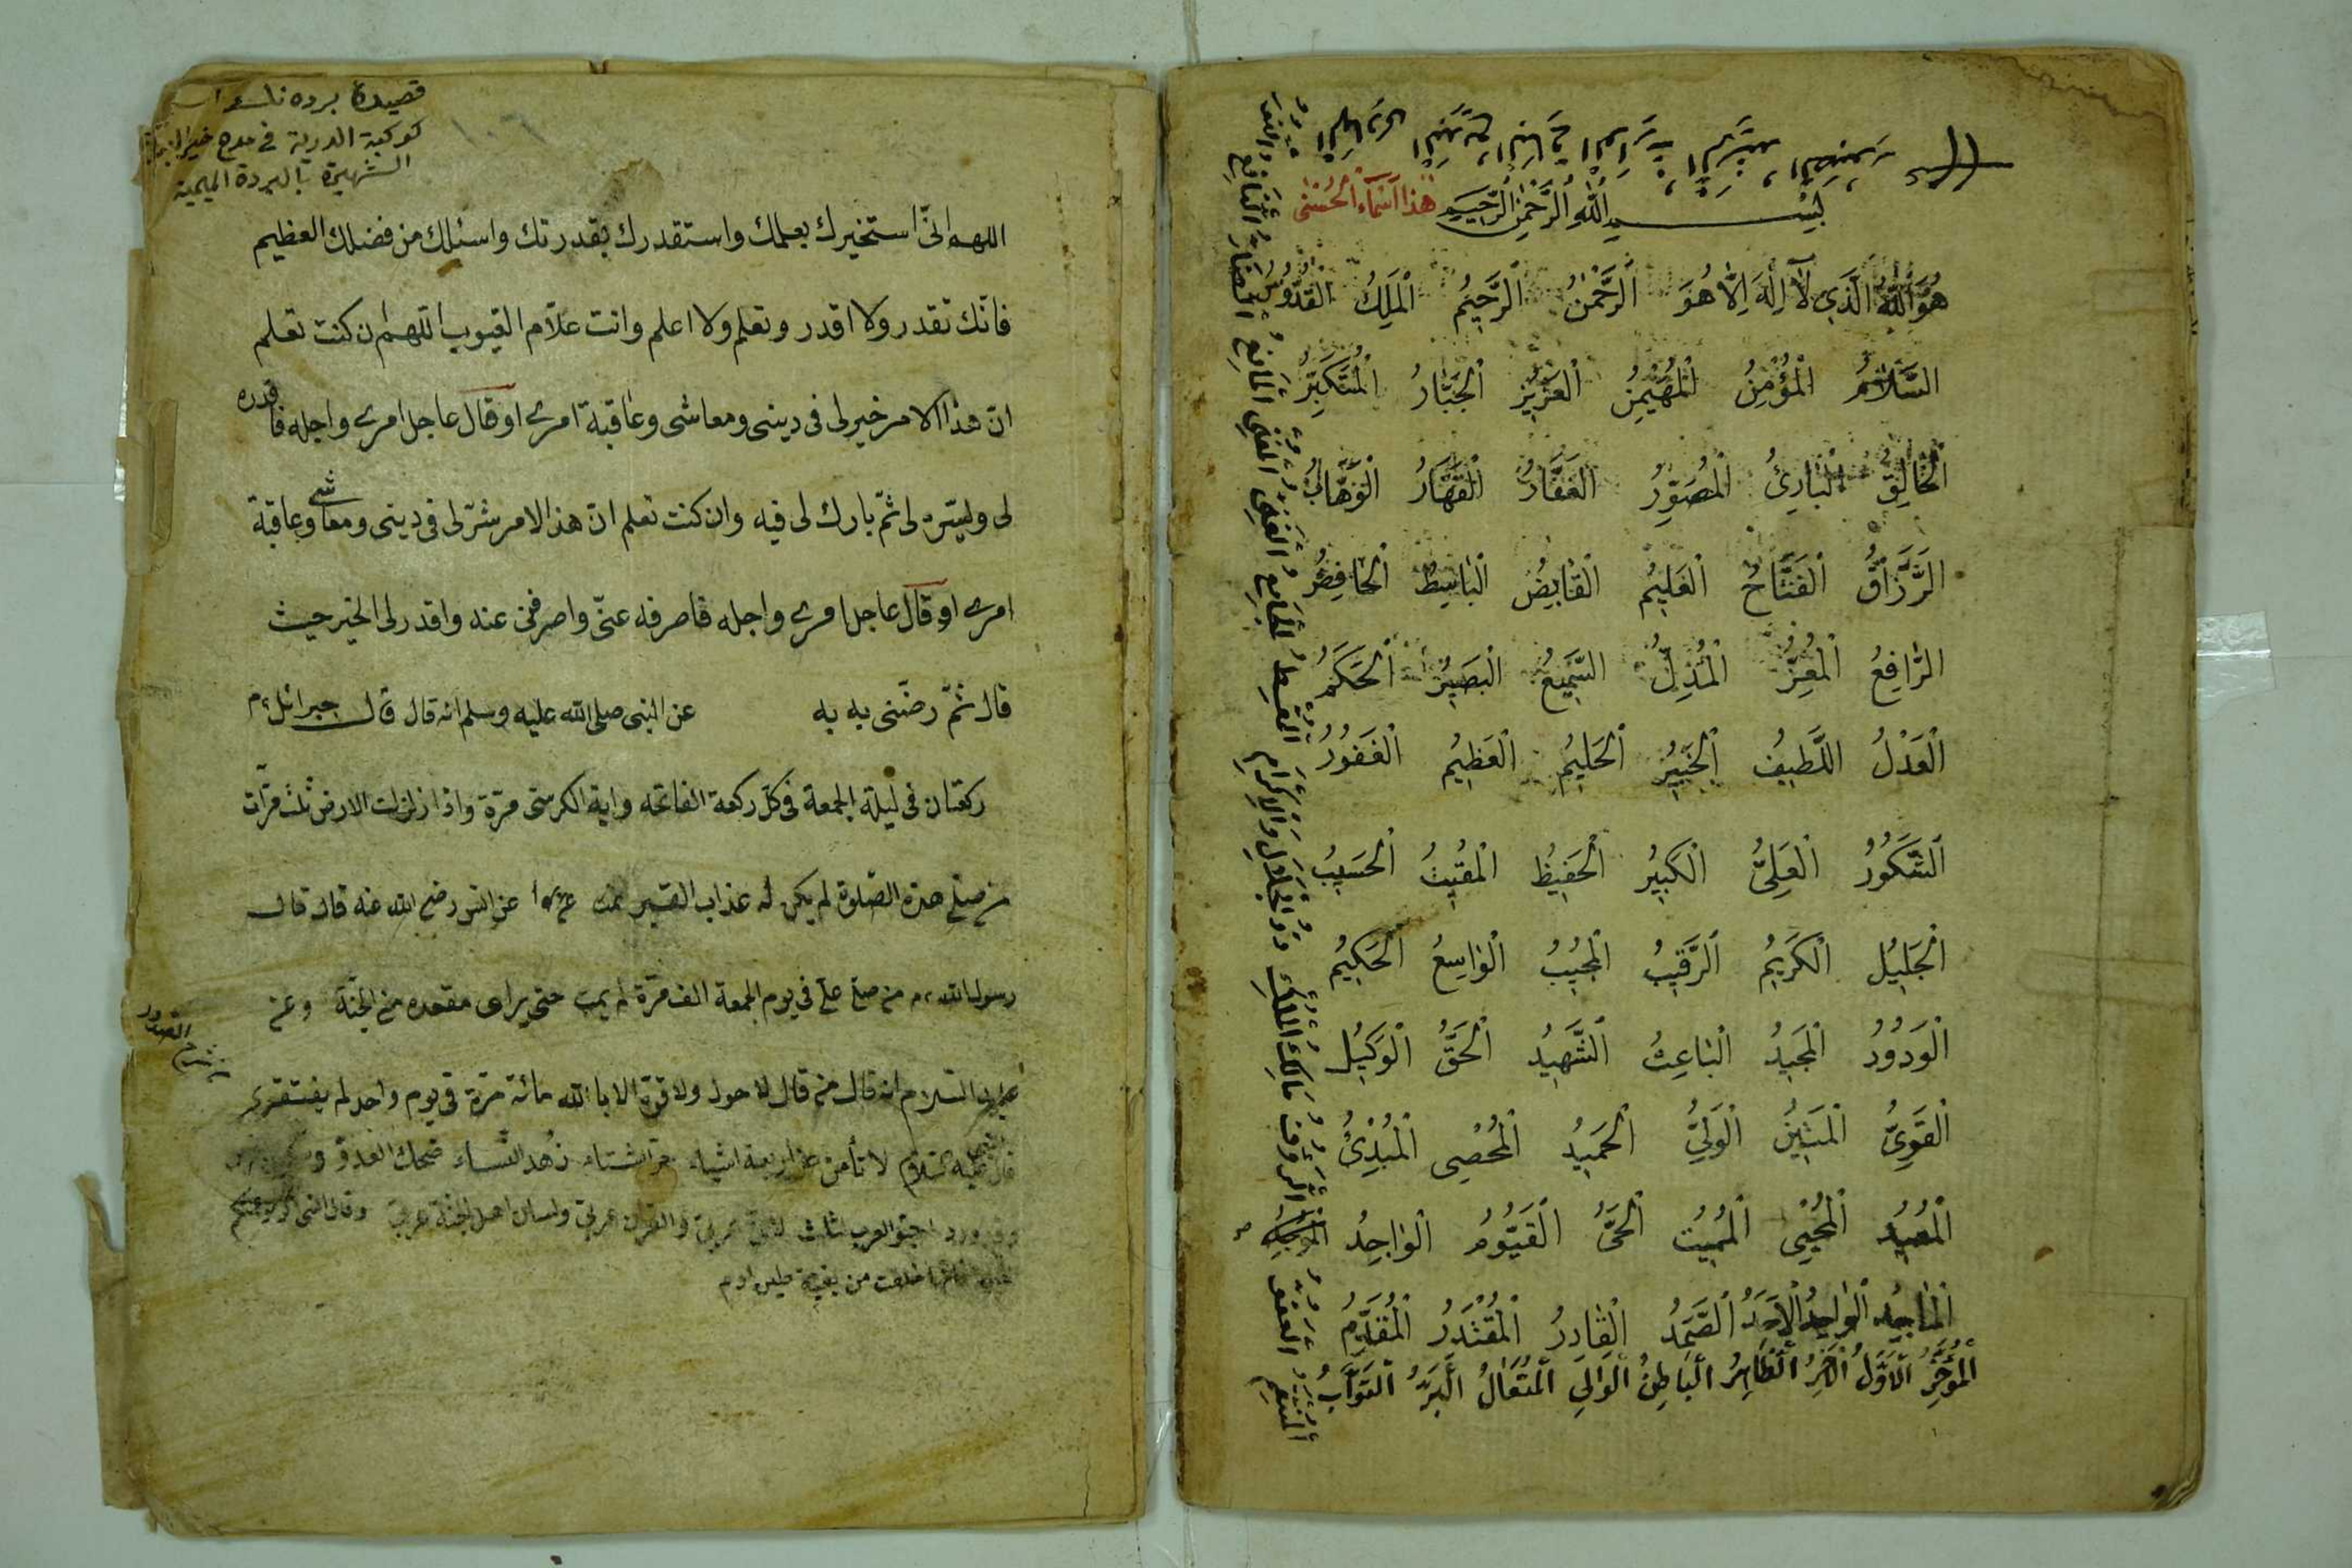 بِسْمِ اللهِ الرَّحْمٰنِ الرَّحِيمِ هٰذَا اَسْمَاءُ الْحُسْنٰى
هُوَ اللهُ الَّذِي لَا اِلٰهَ اِلَّا هُوَ اَلرَّحْمٰنُ اَلرَّحِيمُ اَلْمَلِكُ اَلْقُدُّوسُ
اَلسَّلَامُ اَلْمُؤْمِنُ اَلْمُهَيْمِنُ اَلْعَزِيزُ اَلْجَبَّارُ اَلْمُتَكَبِّرُ
اَلْخَالِقُ اَلْبَارِئُ اَلْمُصَوِّرُ اَلْغَفَّارُ اَلْقَهَّارُ اَلْوَهَّابُ
اَلرَّزَّاقُ اَلْفَتَّاحُ اَلْعَلِيمُ اَلْقَابِضُ اَلْبَاسِطُ اَلْخَافِضُ
اَلرَّافِعُ اَلْمُعِزُّ اَلْمُذِلُّ اَلسَّمِيعُ اَلْبَصِيرُ اَلْحَكَمُ
اَلْعَدْلُ اَللَّطِيفُ اَلْخَبِيرُ اَلْحَلِيمُ اَلْعَظِيمُ اَلْغَفُورُ
اَلشَّكُورُ اَلْعَلِيُّ اَلْكَبِيرُ اَلْحَفِيظُ اَلْمُقِيتُ اَلْحَسِيبُ
اَلْجَلِيلُ اَلْكَرِيمُ اَلرَّقِيبُ اَلْمُجِيبُ اَلْوَاسِعُ اَلْحَكِيمُ
اَلْوَدُودُ اَلْمَجِيدُ اَلْبَاعِثُ اَلشَّهِيدُ اَلْحَقُّ اَلْوَكِيلُ
اَلْقَوِيُّ اَلْمَتِينُ اَلْوَلِيُّ اَلْحَمِيدُ اَلْمُحْصِي اَلْمُبْدِئُ
اَلْمُعِيدُ اَلْمُحْيِي اَلْمُمِيتُ اَلْحَيُّ اَلْقَيُّومُ اَلْوَاجِدُ
اَلْمَاجِدُ اَلْوَاحِدُ اَلْاَحَدُ اَلصَّمَدُ اَلْقَادِرُ اَلْمُقْتَدِرُ اَلْمُقَدِّمُ
اَلْمُؤَخِّرُ اَلْاَوَّلُ اَلْاٰخِرُ اَلظَّاهِرُ اَلْبَاطِنُ اَلْوَالِي اَلْمُتَعَالُ اَلْبَرُّ اَلتَّوَّابُ
اَلْمُنْتَقِمُ اَلْعَفُوُّ اَلرَّؤُفُ مَالِكُ الْمُلْكِ ذُو الْجَلَالِ وَالْاِكْرَامِ اَلْمُقْسِطُ اَلْجَامِعُ اَلْغَنِيُّ اَلْمُغْنِي اَلْمَانِعُ اَلضَّارُّ اَلنَّافِعُ
قصيدۀ برده
كوكبة الدرية فى مدح خير البرية
الشهيرة بالبردة الميمية
١٠٦
اللهم انّى استخيرك بعلمك واستقدرك بقدرتك واسئلك من فضلك العظيم
فانّك تقدر ولا اقدر وتعلم ولا اعلم وانت علّام الغيوب اللهم ان كنت تعلم
انّ هذا الامر خير لى فى دينى ومعاشى وعاقبة امرى او قال عاجل امرى واجله فاقدره
لى ويسّره لى ثمّ بارك لى فيه وان كنت تعلم انّ هذا الامر شرّ لى فى دينى ومعاشى وعاقبة
امرى او قال عاجل امرى واجله فاصرفه عنّى واصرفنى عنه واقدر لى الخير حيث
قال ثمّ رضّنى به به عن النبى صلى الله عليه وسلم انه قال قال جبرائل عم
ركعتان فى ليلة الجمعة فى كلّ ركعة الفاتحه واية الكرسى مرّة واذا زلزلت الارض ثلث مرّات
من صلى هذه الصّلوة لم يكن له عذاب القبر عن انس رضى الله عنه قال قال
رسول الله من صلى علىّ فى يوم الجمعة الف مرّة لم يمت حتى يرى مقعده من الجنّة وعن
عليه السّلام انه قال من قال لا حول ولا قوّة الا بالله مائة مرّة فى يوم واحد لم يفتقر
عليه السّلام لا تأمن من اربعة اشياء زهد النّساء ضحك العدوّ
احبّو العرب لثلث عربىّ والقران عربىّ ولسان اهل الجنة عربىّ وقال النبى
خلقت من بقية طين ادم